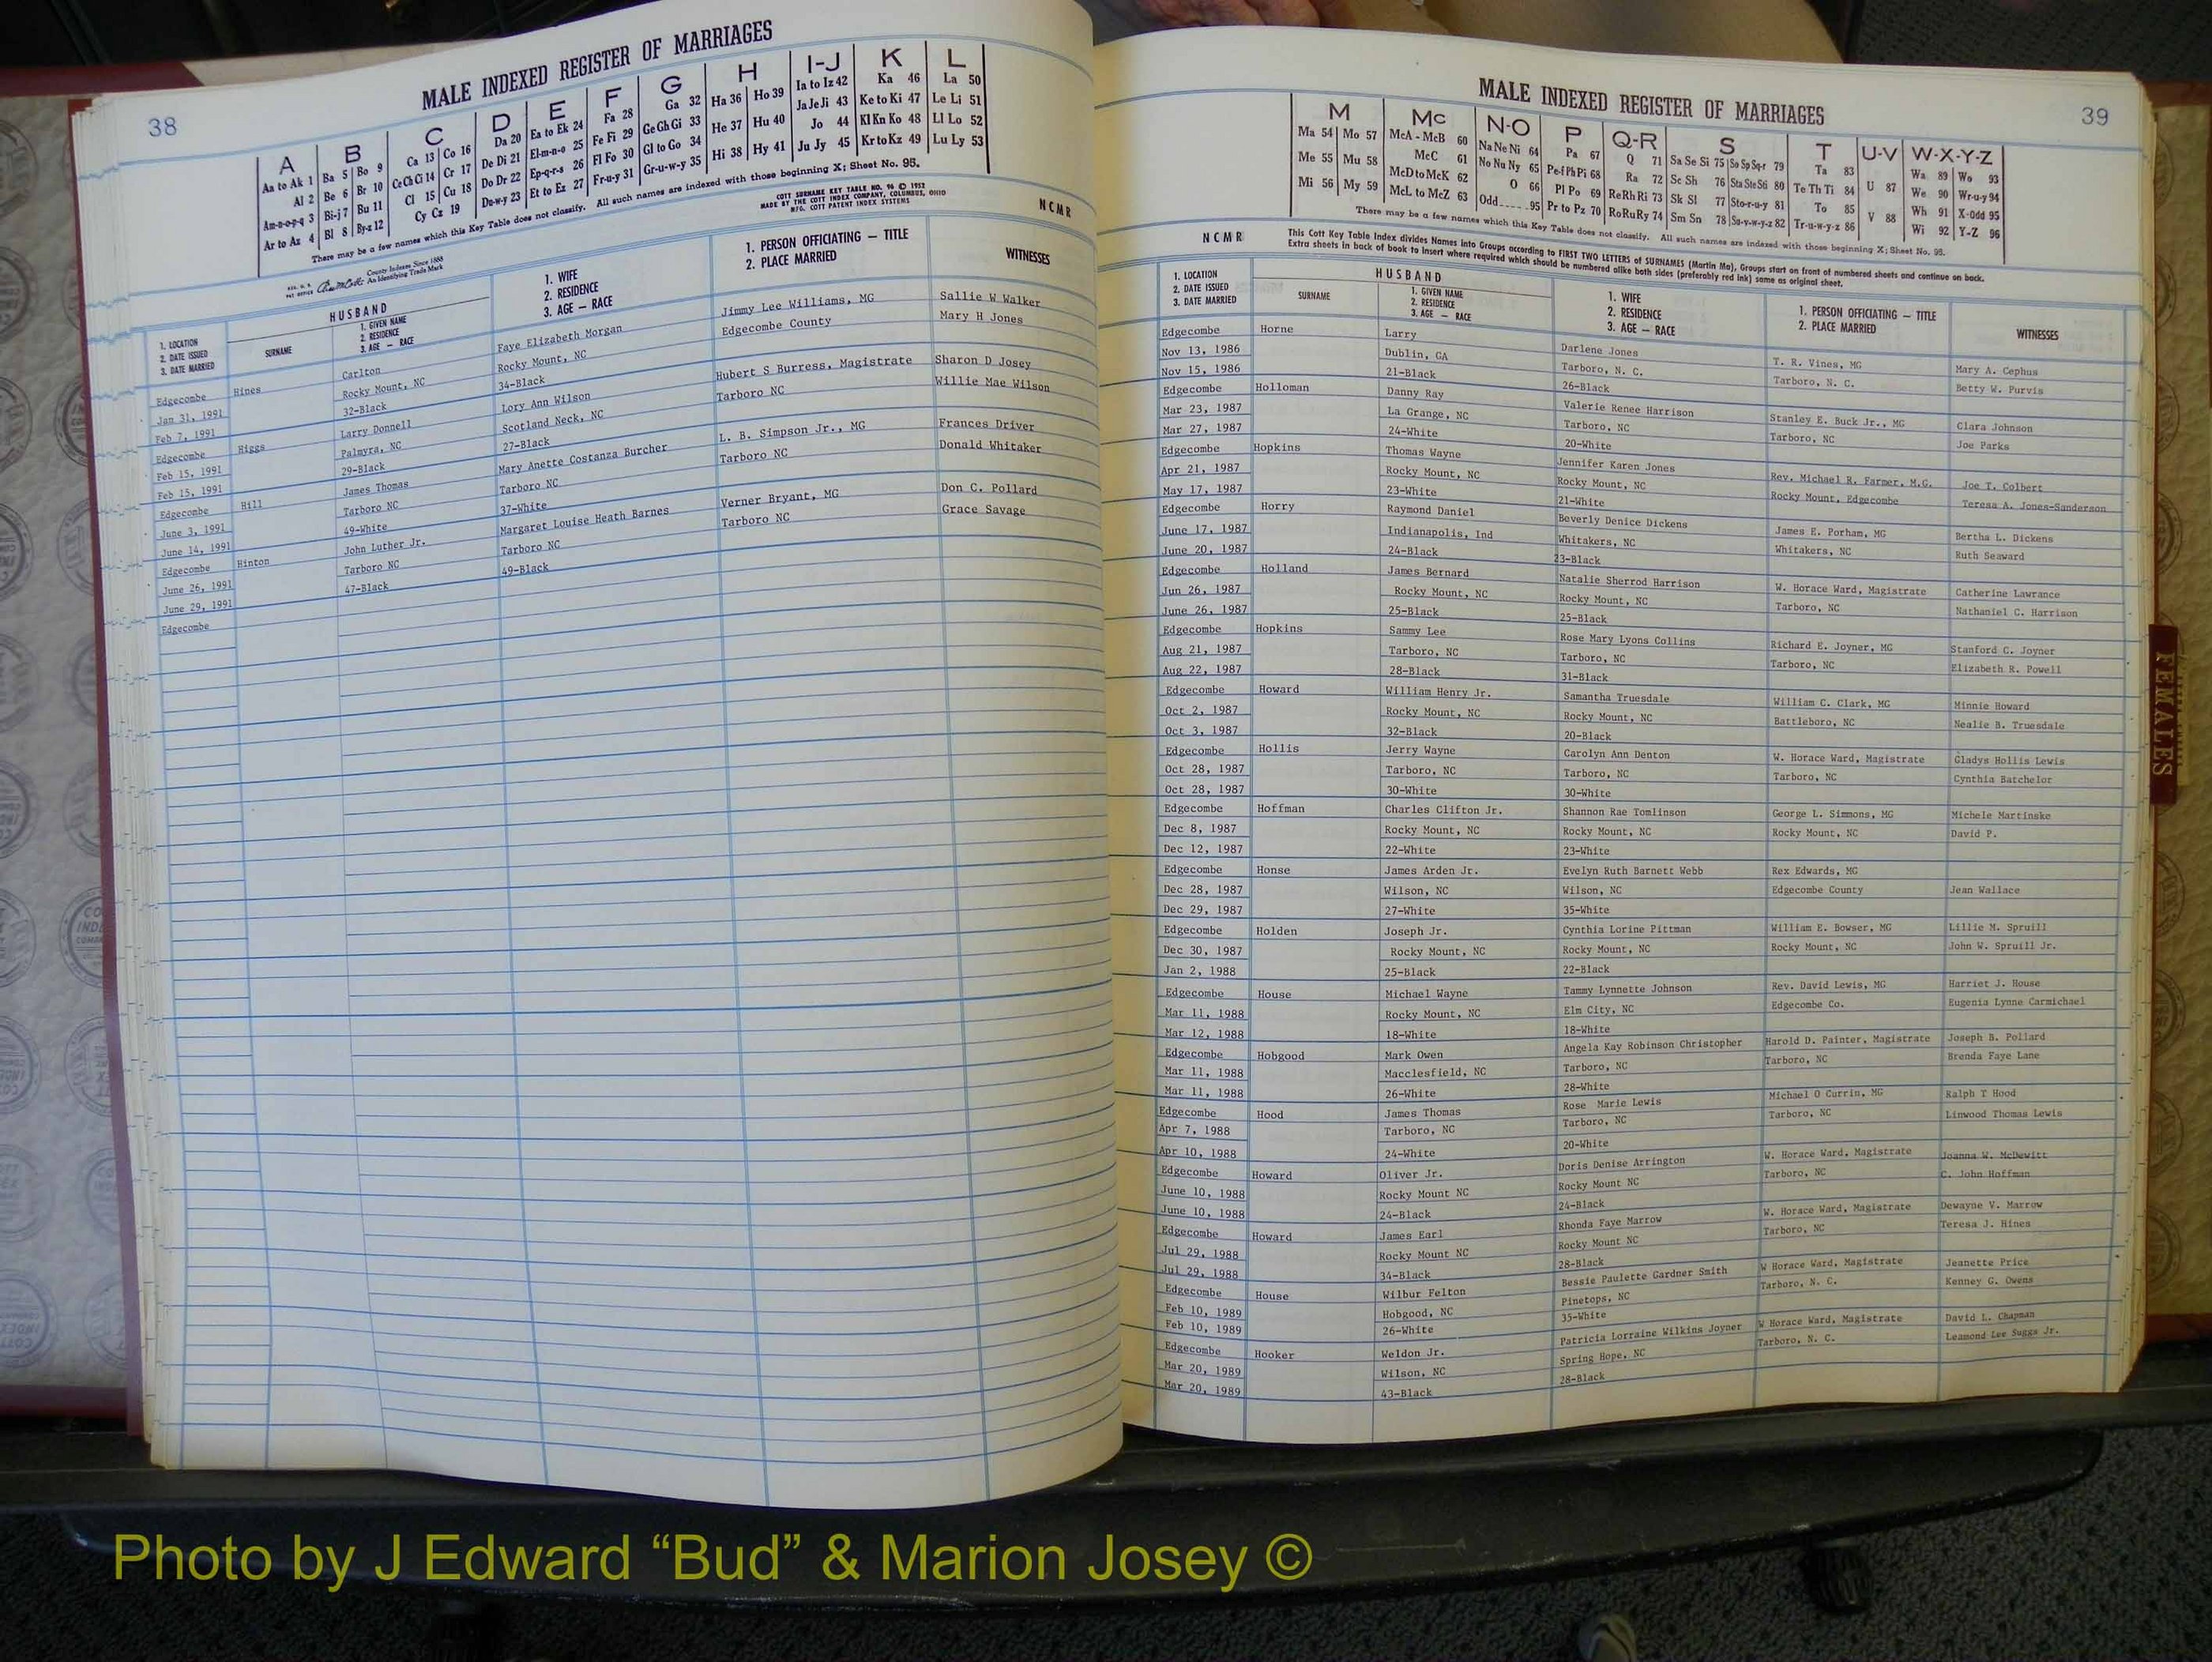 38
MALE INDEXED REGISTER OF MARRIAGES
A B C D E F G H I-J K L
Aa to Ak 1 Ba 5 Bo 9 Ca 13 Co 16 Da 20 Ea to Ek 24 Fa 28 Ga 32 Ha 36 Ho 39 Ia to Iz 42 Ka 46 La 50
Al 2 Be 6 Br 10 Ce Ch Ci 14 Cr 17 De Di 21 El-m-n-o 25 Fe Fi 29 Ge Gh Gi 33 He 37 Hu 40 Ja Je Ji 43 Ke to Ki 47 Le Li 51
Am-n-o-p-q 3 Bi-j 7 Bu 11 Cl 15 Cu 18 Do Dr 22 Ep-q-r-s 26 Fl Fo 30 Gl to Go 34 Hi 38 Hy 41 Jo 44 Kl Kn Ko 48 Ll Lo 52
Ar to Az 4 Bl 8 By-z 12 Cy Cz 19 Du-w-y 23 Et to Ez 27 Fr-u-y 31 Gr-u-w-y 35 Ju Jy 45 Kr to Kz 49 Lu Ly 53
There may be a few names which this Key Table does not classify. All such names are indexed with those beginning X; Sheet No. 95.
County Indexes Since 1888
An Identifying Trade Mark
COTT SURNAME KEY TABLE NO. 96 © 1952
MADE BY THE COTT INDEX COMPANY, COLUMBUS, OHIO
MFG. COTT PATENT INDEX SYSTEMS
NCMR
1. LOCATION
2. DATE ISSUED
3. DATE MARRIED
HUSBAND
SURNAME
1. GIVEN NAME
2. RESIDENCE
3. AGE — RACE
1. WIFE
2. RESIDENCE
3. AGE — RACE
1. PERSON OFFICIATING — TITLE
2. PLACE MARRIED
WITNESSES
Edgecombe Hines Carlton Faye Elizabeth Morgan Jimmy Lee Williams, MG Sallie W Walker
Jan 31, 1991 Rocky Mount, NC Rocky Mount, NC Edgecombe County Mary H Jones
Feb 7, 1991 32-Black 34-Black
Edgecombe Higgs Larry Donnell Lory Ann Wilson Hubert S Burress, Magistrate Sharon D Josey
Feb 15, 1991 Palmyra, NC Scotland Neck, NC Tarboro NC Willie Mae Wilson
Feb 15, 1991 29-Black 27-Black
Edgecombe Hill James Thomas Mary Anette Costanza Burcher L. B. Simpson Jr., MG Frances Driver
June 3, 1991 Tarboro NC Tarboro NC Tarboro NC Donald Whitaker
June 14, 1991 49-White 37-White
Edgecombe Hinton John Luther Jr. Margaret Louise Heath Barnes Verner Bryant, MG Don C. Pollard
June 26, 1991 Tarboro NC Tarboro NC Tarboro NC Grace Savage
June 29, 1991 47-Black 49-Black
Edgecombe
MALE INDEXED REGISTER OF MARRIAGES
39
M Mc N-O P Q-R S T U-V W-X-Y-Z
Ma 54 Mo 57 McA - McB 60 Na Ne Ni 64 Pa 67 Q 71 Sa Se Si 75 So Sp Sq-r 79 Ta 83 U 87 Wa 89 Wo 93
Me 55 Mu 58 McC 61 No Nu Ny 65 Pe-f Ph Pi 68 Ra 72 Sc Sh 76 Sta Ste Sti 80 Te Th Ti 84 V 88 We 90 Wr-u-y 94
Mi 56 My 59 McD to McK 62 O 66 Pl Po 69 Re Rh Ri 73 Sk Sl 77 Sto-r-u-y 81 To 85 Wh 91 X-Odd 95
McL to McZ 63 Odd 95 Pr to Pz 70 Ro Ru Ry 74 Sm Sn 78 Su-v-w-y-z 82 Tr-u-w-y-z 86 Wi 92 Y-Z 96
There may be a few names which this Key Table does not classify. All such names are indexed with those beginning X; Sheet No. 95.
NCMR
This Cott Key Table Index divides Names into Groups according to FIRST TWO LETTERS of SURNAMES (Martin Ma), Groups start on front of numbered sheets and continue on back.
Extra sheets in back of book to insert where required which should be numbered alike both sides (preferably red ink) same as original sheet.
1. LOCATION
2. DATE ISSUED
3. DATE MARRIED
HUSBAND
SURNAME
1. GIVEN NAME
2. RESIDENCE
3. AGE — RACE
1. WIFE
2. RESIDENCE
3. AGE — RACE
1. PERSON OFFICIATING — TITLE
2. PLACE MARRIED
WITNESSES
Edgecombe Horne Larry Darlene Jones T. R. Vines, MG Mary A. Cephus
Nov 13, 1986 Dublin, GA Tarboro, N. C. Tarboro, N. C. Betty W. Purvis
Nov 15, 1986 21-Black 26-Black
Edgecombe Holloman Danny Ray Valerie Renee Harrison Stanley E. Buck Jr., MG Clara Johnson
Mar 23, 1987 La Grange, NC Tarboro, NC Tarboro, NC Joe Parks
Mar 27, 1987 24-White 20-White
Edgecombe Hopkins Thomas Wayne Jennifer Karen Jones Rev. Michael R. Farmer, M.G. Joe T. Colbert
Apr 21, 1987 Rocky Mount, NC Rocky Mount, NC Rocky Mount, Edgecombe Teresa A. Jones-Sanderson
May 17, 1987 23-White 21-White
Edgecombe Horry Raymond Daniel Beverly Denice Dickens James E. Porham, MG Bertha L. Dickens
June 17, 1987 Indianapolis, Ind Whitakers, NC Whitakers, NC Ruth Seaward
June 20, 1987 24-Black 23-Black
Edgecombe Holland James Bernard Natalie Sherrod Harrison W. Horace Ward, Magistrate Catherine Lawrance
Jun 26, 1987 Rocky Mount, NC Rocky Mount, NC Tarboro, NC Nathaniel C. Harrison
June 26, 1987 25-Black 25-Black
Edgecombe Hopkins Sammy Lee Rose Mary Lyons Collins Richard E. Joyner, MG Stanford C. Joyner
Aug 21, 1987 Tarboro, NC Tarboro, NC Tarboro, NC Elizabeth R. Powell
Aug 22, 1987 28-Black 31-Black
Edgecombe Howard William Henry Jr. Samantha Truesdale William C. Clark, MG Minnie Howard
Oct 2, 1987 Rocky Mount, NC Rocky Mount, NC Battleboro, NC Nealie B. Truesdale
Oct 3, 1987 32-Black 20-Black
Edgecombe Hollis Jerry Wayne Carolyn Ann Denton W. Horace Ward, Magistrate Gladys Hollis Lewis
Oct 28, 1987 Tarboro, NC Tarboro, NC Tarboro, NC Cynthia Batchelor
Oct 28, 1987 30-White 30-White
Edgecombe Hoffman Charles Clifton Jr. Shannon Rae Tomlinson George L. Simmons, MG Michele Martinske
Dec 8, 1987 Rocky Mount, NC Rocky Mount, NC Rocky Mount, NC David P.
Dec 12, 1987 22-White 23-White
Edgecombe Honse James Arden Jr. Evelyn Ruth Barnett Webb Rex Edwards, MG
Dec 28, 1987 Wilson, NC Wilson, NC Edgecombe County Jean Wallace
Dec 29, 1987 27-White 35-White
Edgecombe Holden Joseph Jr. Cynthia Lorine Pittman William E. Bowser, MG Lillie M. Spruill
Dec 30, 1987 Rocky Mount, NC Rocky Mount, NC Rocky Mount, NC John W. Spruill Jr.
Jan 2, 1988 25-Black 22-Black
Edgecombe House Michael Wayne Tammy Lynnette Johnson Rev. David Lewis, MG Harriet J. House
Mar 11, 1988 Rocky Mount, NC Elm City, NC Edgecombe Co. Eugenia Lynne Carmichael
Mar 12, 1988 18-White 18-White
Edgecombe Hobgood Mark Owen Angela Kay Robinson Christopher Harold D. Painter, Magistrate Joseph B. Pollard
Mar 11, 1988 Macclesfield, NC Tarboro, NC Tarboro, NC Brenda Faye Lane
Mar 11, 1988 26-White 28-White
Edgecombe Hood James Thomas Rose Marie Lewis Michael O Currin, MG Ralph T Hood
Apr 7, 1988 Tarboro, NC Tarboro, NC Tarboro, NC Linwood Thomas Lewis
Apr 10, 1988 24-White 20-White
Edgecombe Howard Oliver Jr. Doris Denise Arrington W. Horace Ward, Magistrate Joanna W. McDewitt
June 10, 1988 Rocky Mount NC Rocky Mount NC Tarboro, NC C. John Hoffman
June 10, 1988 24-Black 24-Black
Edgecombe Howard James Earl Rhonda Faye Marrow W. Horace Ward, Magistrate Dewayne V. Marrow
Jul 29, 1988 Rocky Mount NC Rocky Mount NC Tarboro, NC Teresa J. Hines
Jul 29, 1988 34-Black 28-Black
Edgecombe House Wilbur Felton Bessie Paulette Gardner Smith W Horace Ward, Magistrate Jeanette Price
Feb 10, 1989 Hobgood, NC Pinetops, NC Tarboro, N. C. Kenney G. Owens
Feb 10, 1989 26-White 35-White
Edgecombe Hooker Weldon Jr. Patricia Lorraine Wilkins Joyner W Horace Ward, Magistrate David L. Chapman
Mar 20, 1989 Wilson, NC Spring Hope, NC Tarboro, N. C. Leamond Lee Suggs Jr.
Mar 20, 1989 43-Black 28-Black
FEMALES
Photo by J Edward “Bud” & Marion Josey ©